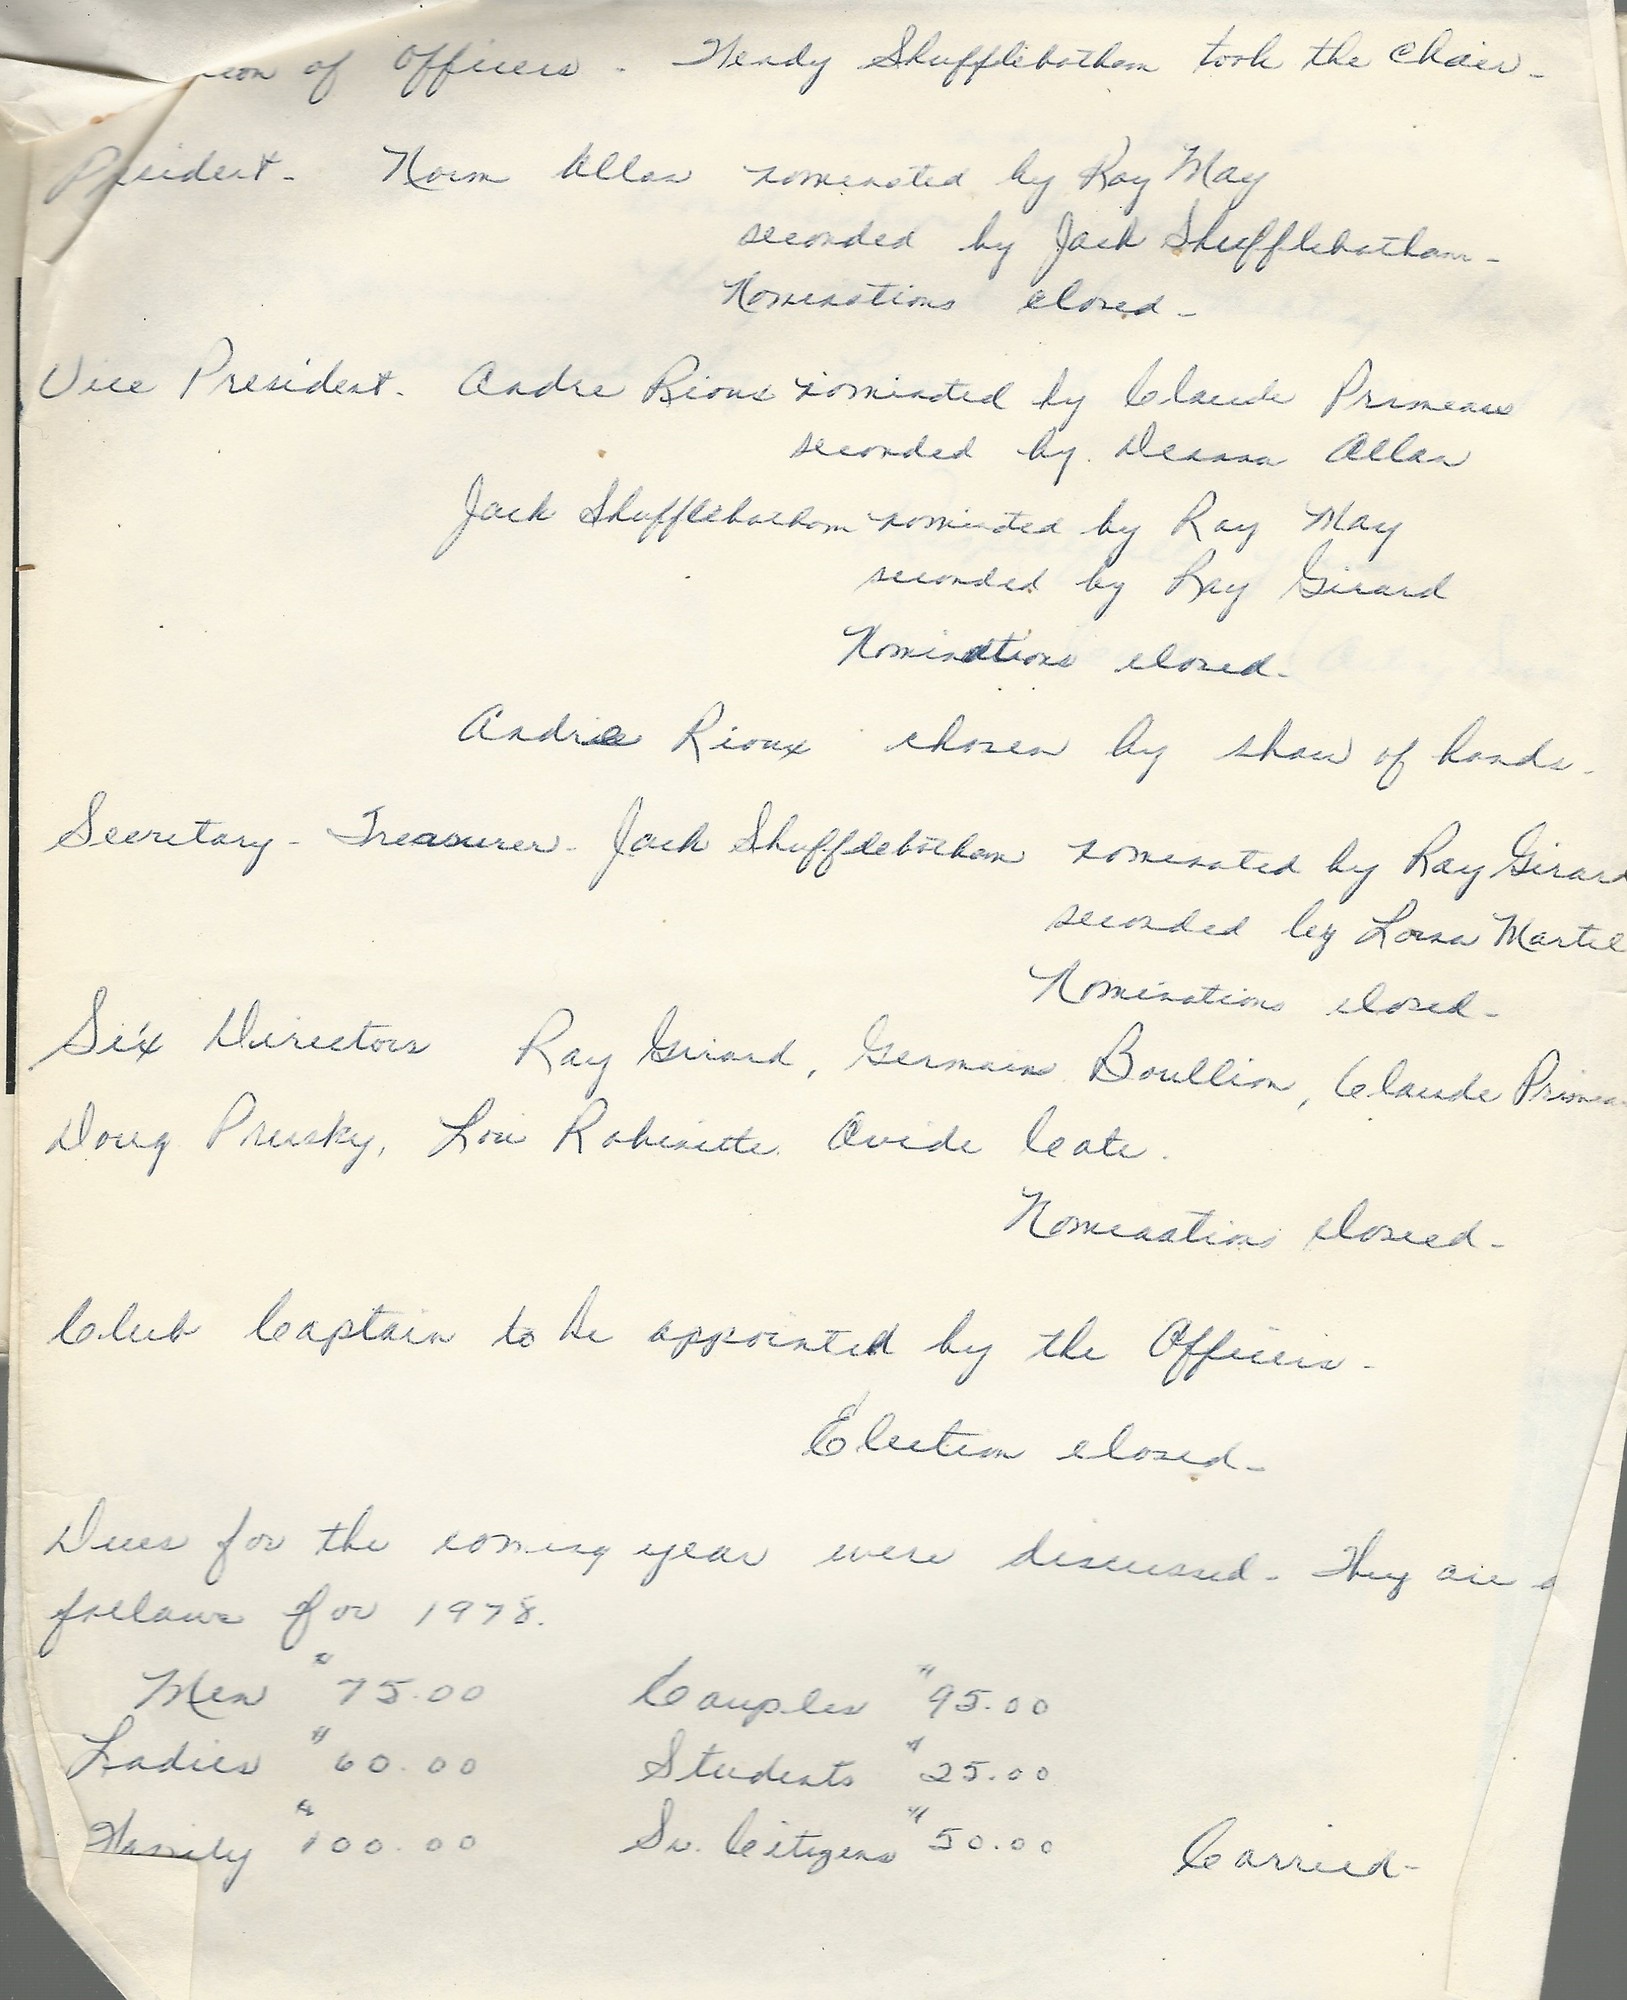 of Officers - Wendy Shufflebotham took the Chair -
President - Norm Allan nominated by Ray May
seconded by Jack Shufflebotham -
Nominations closed -
Vice President - Andre Rioux nominated by Claude Primeau
seconded by Deanna Allan
Jack Shufflebotham nominated by Ray May
seconded by Ray Girard
Nominations closed -
Andre Rioux chosen by show of hands -
Secretary - Treasurer - Jack Shufflebotham nominated by Ray Girard
seconded by Lorna Martel
Nominations closed -
Six Directors Ray Girard, Germain Boullion, Claude
Doug Prusky, Lou Robinette, Ovide Cote.
Nominations closed -
Club Captain to be appointed by the Officers -
Election closed -
Dues for the coming year were discussed - They are
follows for 1978.
Men $75.00 Couples $95.00
Ladies $60.00 Students $25.00
Family $100.00 Sr. Citizens $50.00 Carried -